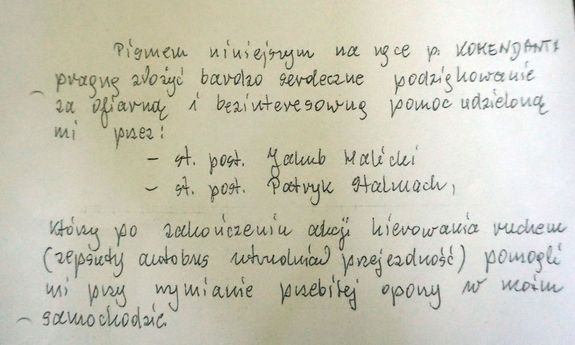 Pismem niniejszym na ręce p. KOMENDANTA
pragnę złożyć bardzo serdeczne podziękowanie
za ofiarną i bezinteresowną pomoc udzieloną
mi przez:
- st. post. Jakub Malicki
- st. post. Patryk Stalmach,
którzy po zakończeniu akcji kierowania ruchem
(zepsuty autobus utrudniał przejezdność) pomogli
mi przy wymianie przebitej opony w moim
samochodzie.